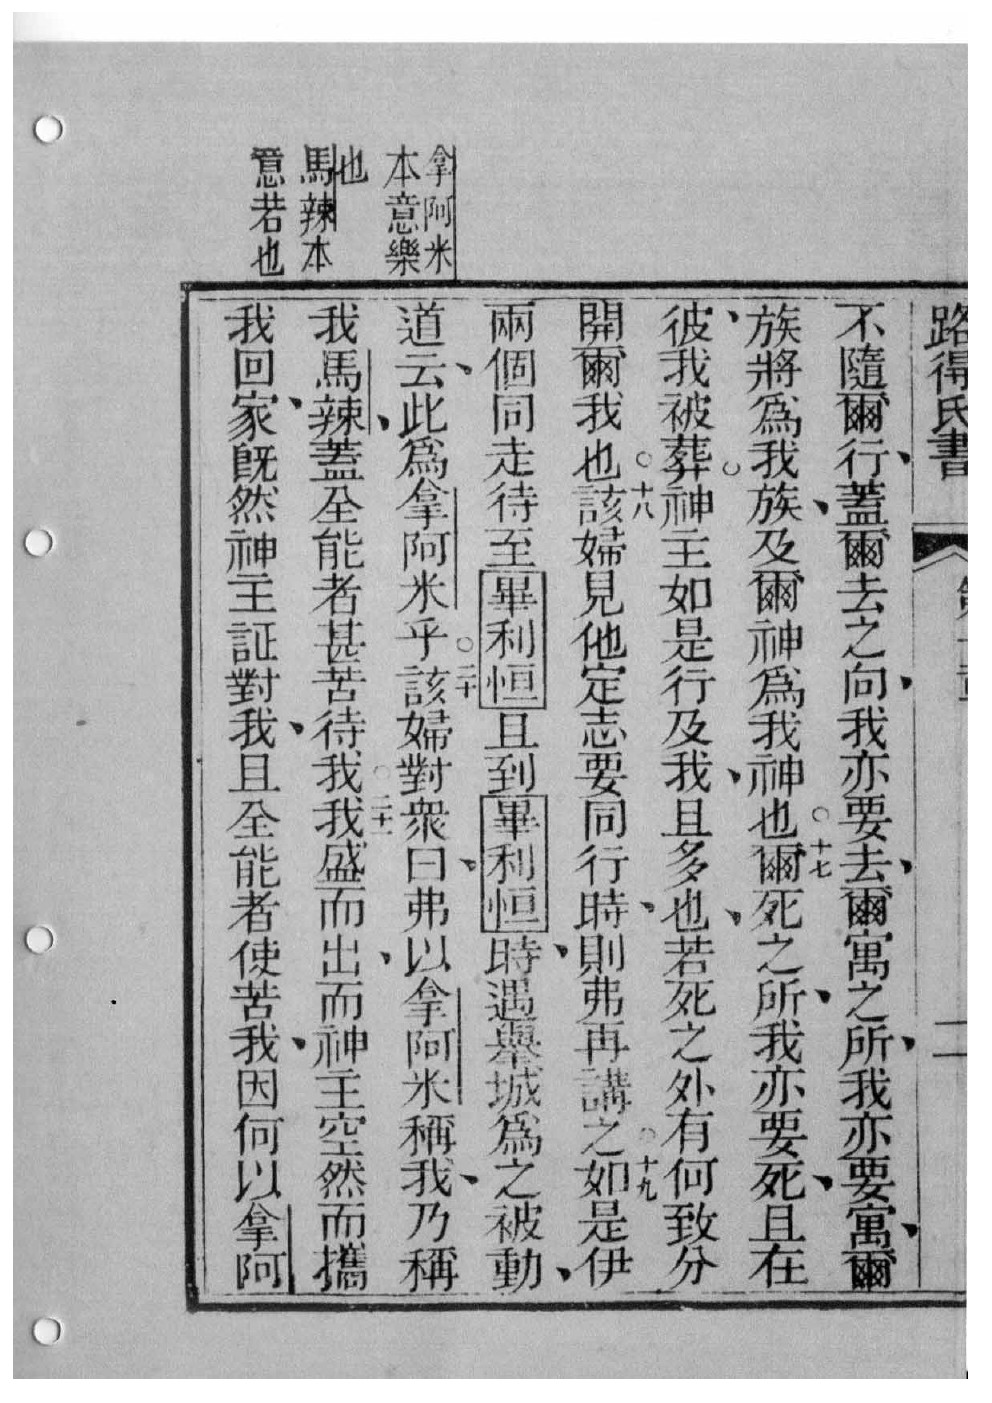 路得氏書
不隨爾行、蓋爾去之向、我亦要去、爾寓之所、我亦要寓、爾
族將為我族、及爾神為我神也○十七爾死之所、我亦要死、且在
彼、我被葬○神主如是行及我、且多也、若死之外有何致分
開爾我也○十八該婦見他定志要同行時、則弗再講之○十九如是伊
兩個同走待至畢利恒且到畢利恒時、遇舉城為之被動、
道云、此為拿阿米乎○二十該婦對眾曰、弗以拿阿米稱我、乃稱
我馬辣、蓋全能者甚苦待我○二十一我盛而出、而神主空然而攜
我回家、既然神主証對我、且全能者使苦我、因何以拿阿
拿阿米
本意樂
也
馬辣本
意若也